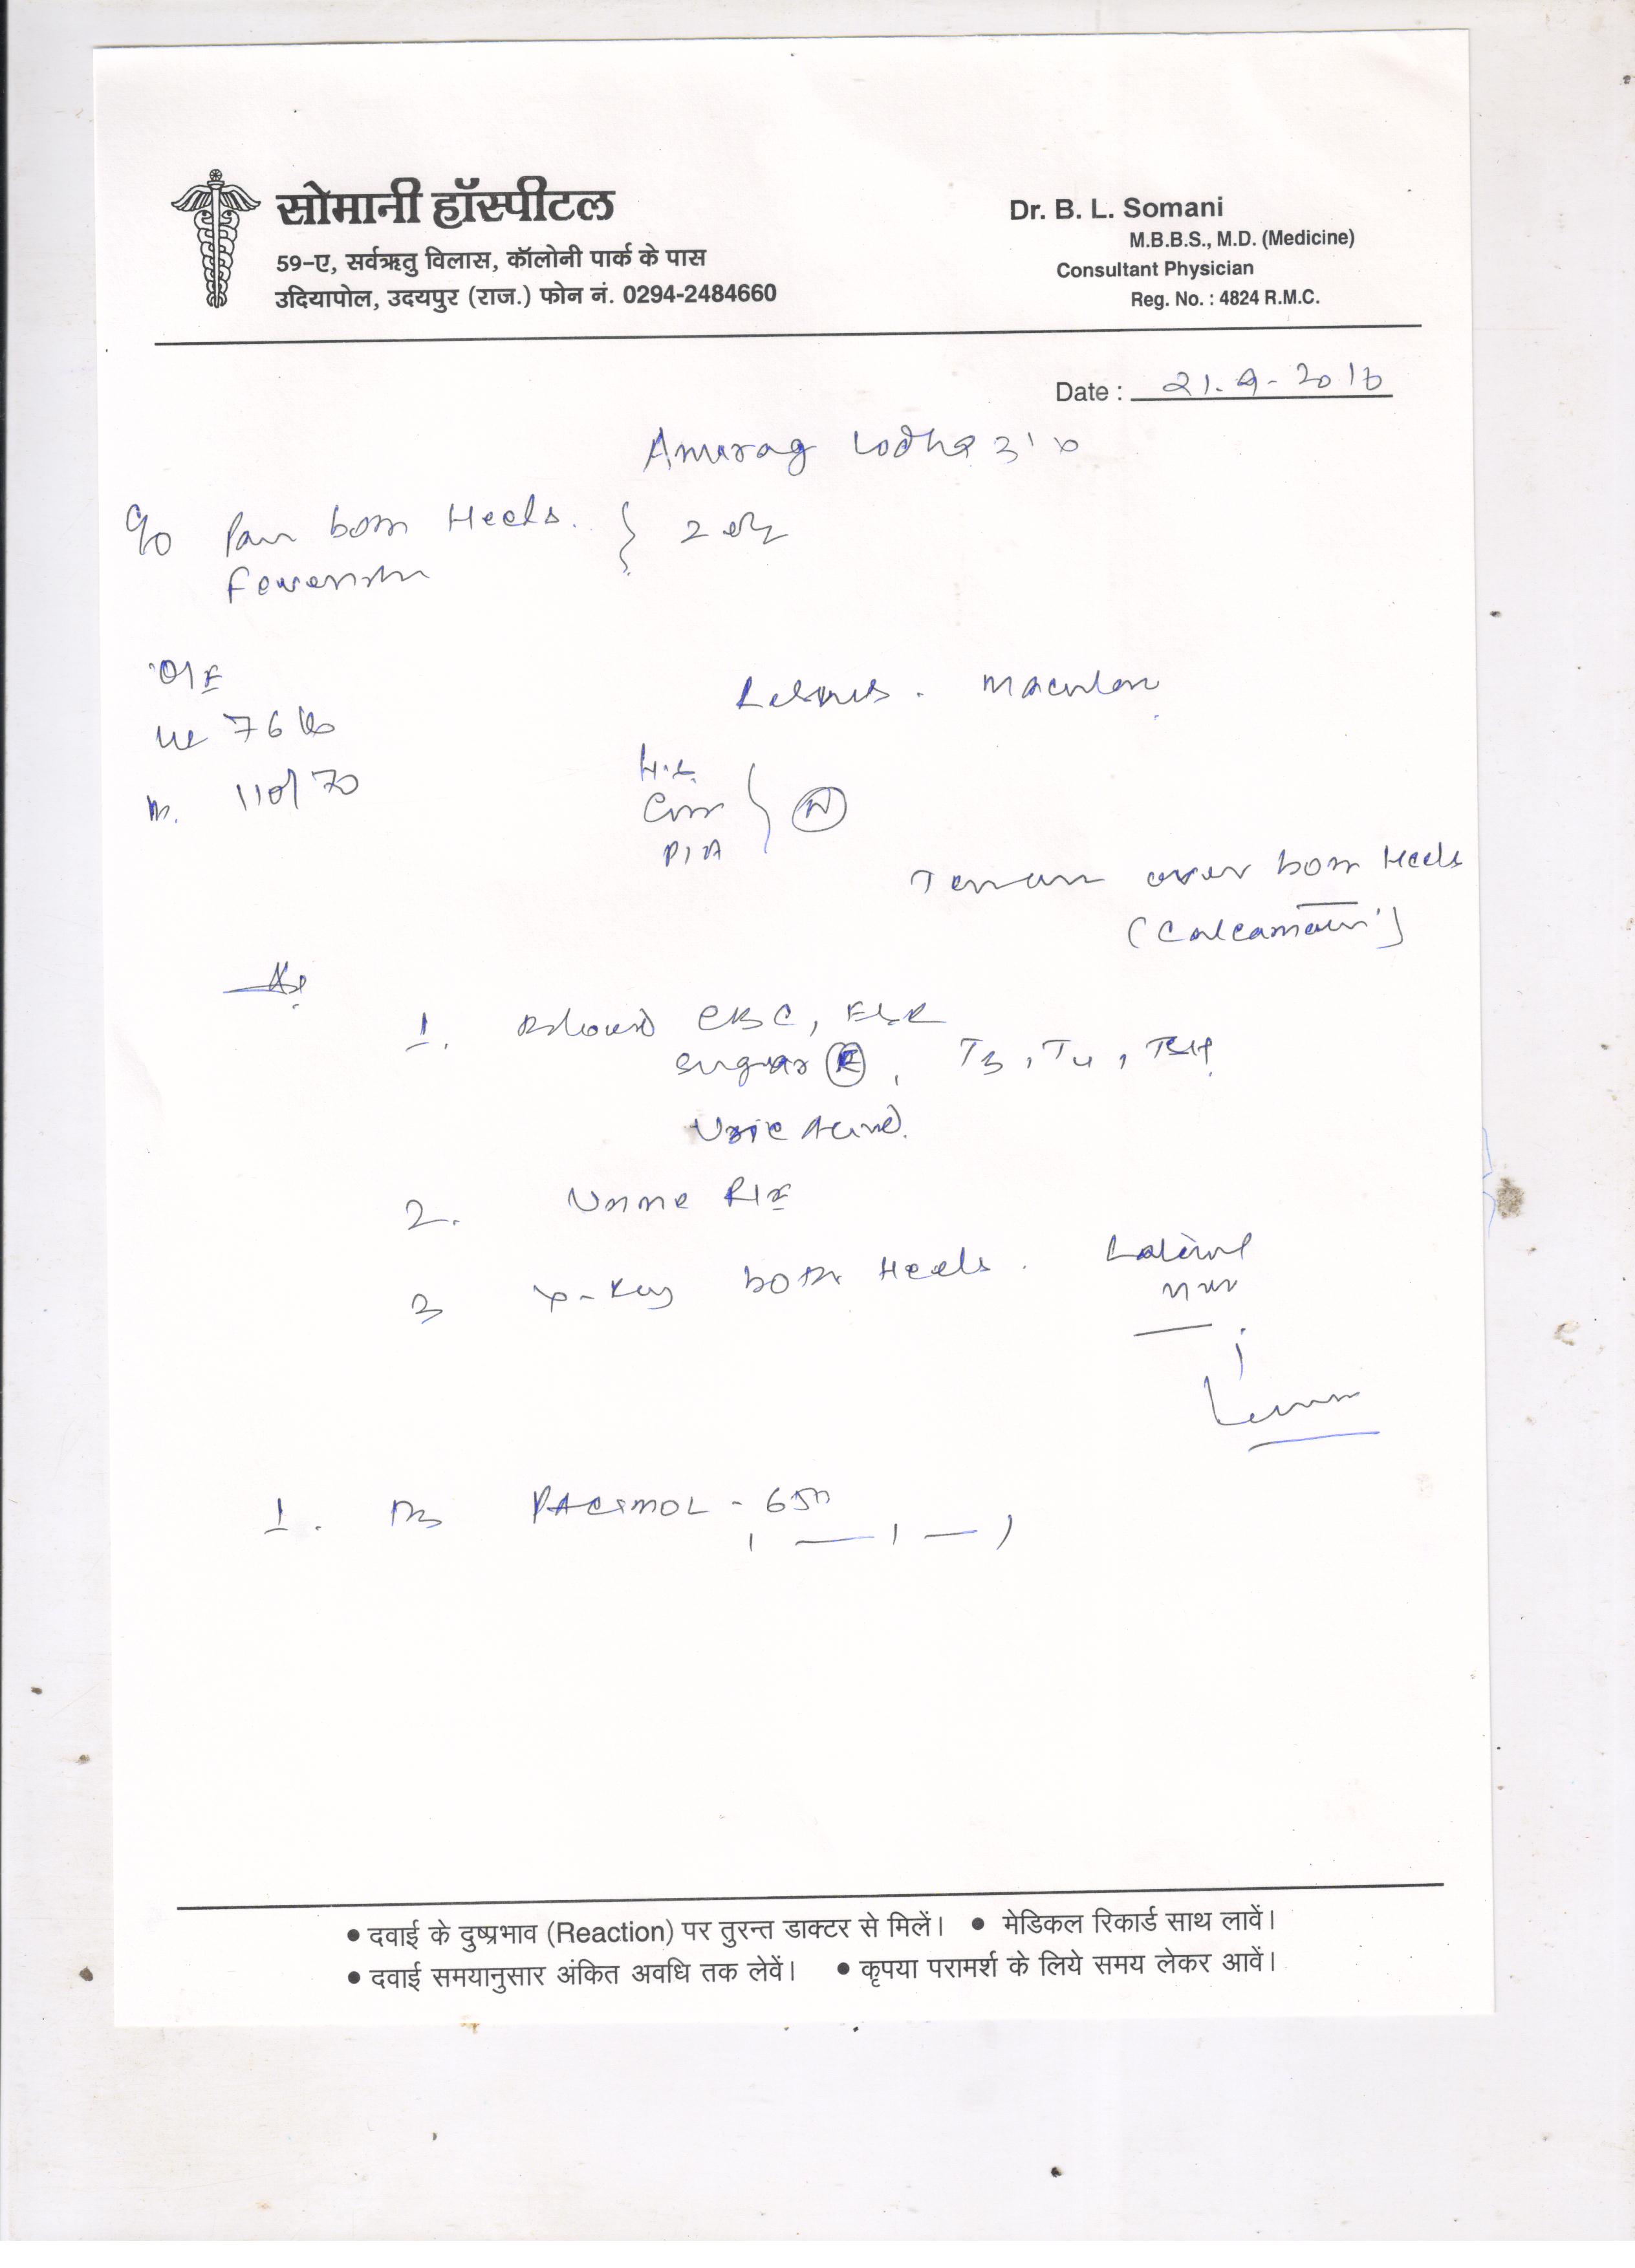 सोमानी हॉस्पीटल
59-ए, सर्वऋतु विलास, कॉलोनी पार्क के पास
उदियापोल, उदयपुर (राज.) फोन नं. 0294-2484660
Dr. B. L. Somani
M.B.B.S., M.D. (Medicine)
Consultant Physician
Reg. No. : 4824 R.M.C.
Date : 21.9-2016
Anurag Lodha
C/o Pain both Heels.
O/E
76
110/70
P/A
N
over both Heels
1. Blood CBC, ESR
Sugar R, T3, T4, TSH
Uric Acid.
2. Urine R/E
3 X-Ray both Heels. Lateral
view
1. PACIMOL - 650
• दवाई के दुष्प्रभाव (Reaction) पर तुरन्त डाक्टर से मिलें। • मेडिकल रिकार्ड साथ लावें।
• दवाई समयानुसार अंकित अवधि तक लेवें। • कृपया परामर्श के लिये समय लेकर आवें।